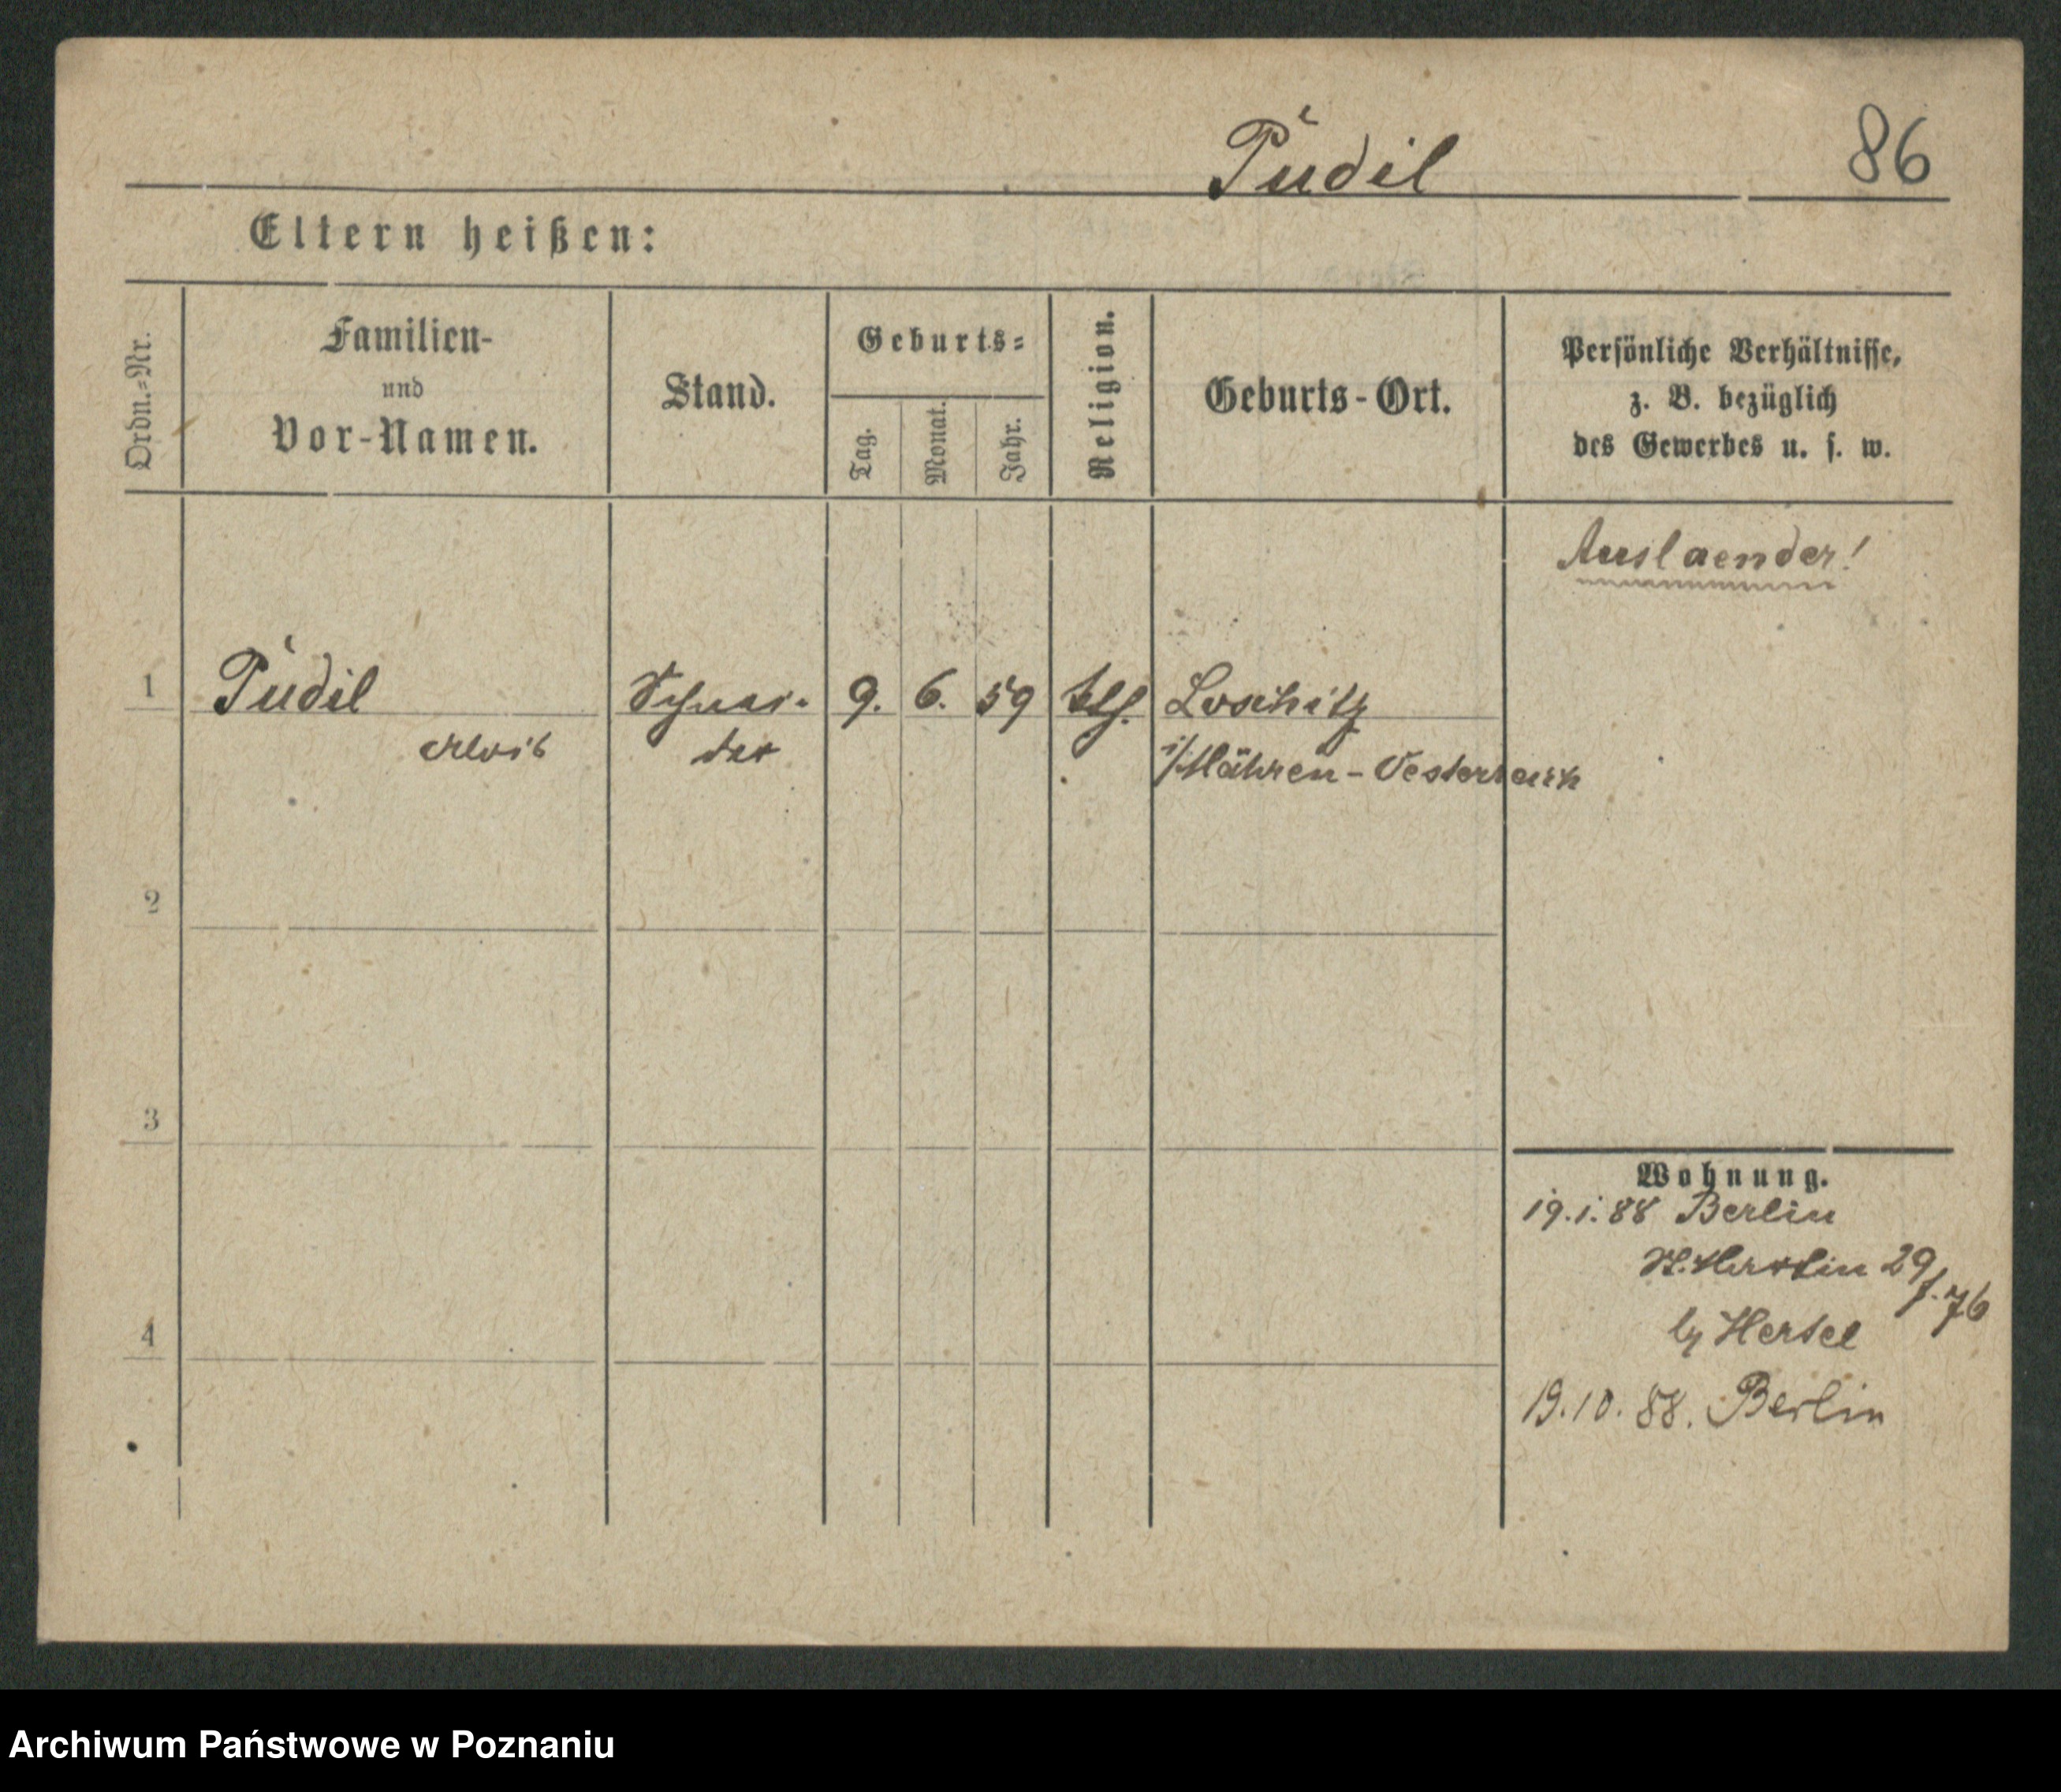 Pudil 86
Eltern heißen:
Ordn.=Nr.
Familien-
und
Vor-Namen.
Stand.
Geburts=
Tag.
Monat.
Jahr.
Religion.
Geburts-Ort.
Persönliche Verhältnisse,
z. B. bezüglich
des Gewerbes u. s. w.
Auslaender!
1 Pudil Schnei- 9. 6. 59 ktl. Loschitz
Alois der i/Mähren-Oesterreich
2
3
4
Wohnung.
19.1.88 Berlin
St. Martin 29
f. 76
by Hertel
19.10.88. Berlin
Archiwum Państwowe w Poznaniu